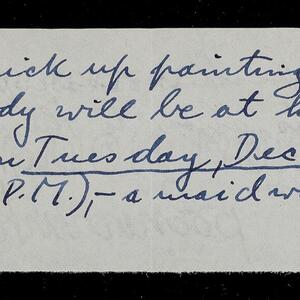 ick up painting
dy will be at h
n Tuesday, Dec
P.M.), - a maid w